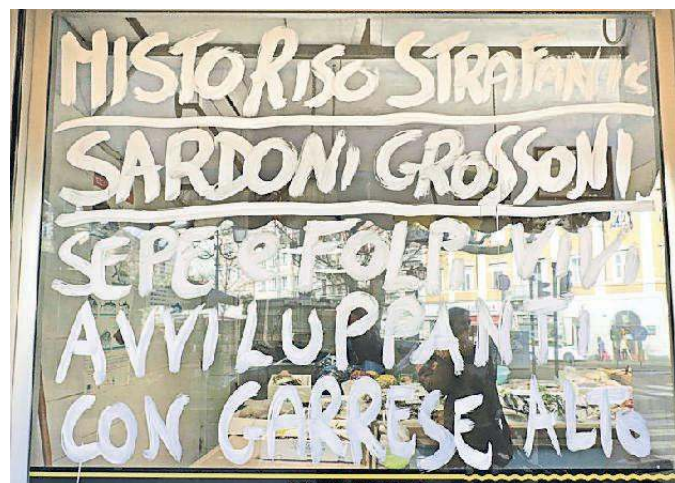 MISTO RISO STRAFANIC
SARDONI GROSSONI
SEPE e FOLPI VIVI
AVVILUPPANTI
CON GARRESE ALTO